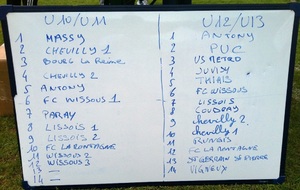 U10/U11
1 MASSY
2 CHEVILLY 1
3 BOURG LA REINE
4 CHEVILLY 2
5 ANTONY
6 FC WISSOUS 1
7 PARAY
8 LISSOIS 1
9 LISSOIS 2
10 FC LA MONTAGNE
11 WISSOUS 2
12 WISSOUS 3
13
14
U12/U13
1 ANTONY
2 PUC
3 US METRO
4 JUVISY
5 THIAIS
6 FC WISSOUS
7 LISSOIS
8 COUDRAY
9 chevilly 2
10 chevilly 1
11 RUNGIS
12 FC LA MONTAGNE
13 ST GERMAIN ST PIERRE
14 VIGNEUX